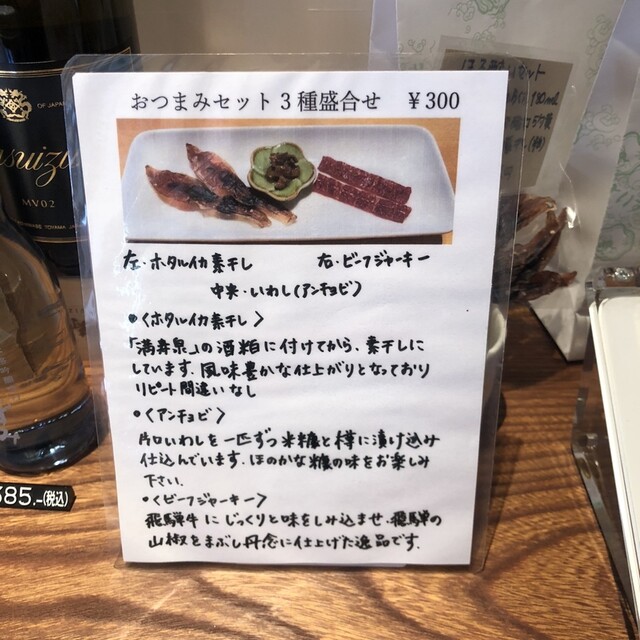 おつまみセット3種盛合せ ¥300
左・ホタルイカ素干し 右・ビーフジャーキー
中央・いわし(アンチョビ)
•〈ホタルイカ素干し〉
「満寿泉」の酒粕に付けてから、素干しに
しています。風味豊かな仕上がりとなっており
リピート間違いなし
•〈アンチョビ〉
片口いわしを一匹ずつ米糠と樽に漬け込み
仕込んでいます。ほのかな糠の味をお楽しみ
下さい。
•〈ビーフジャーキー〉
飛騨牛にじっくりと味をしみ込ませ、飛騨の
山椒をまぶし丹念に仕上げた逸品です。
OF JAPAN
MV02
TOYAMA
385.-(税込)
セット
180ml